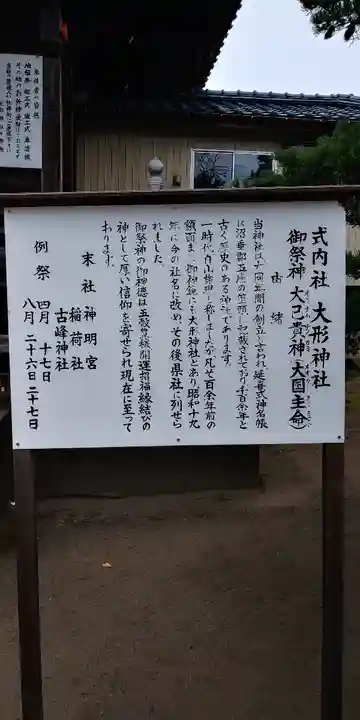 式内社 大形神社
御祭神 大己貴神(大国主命)
由緒
当神社は大同年間の創立と言われ延喜式神名帳
に沼垂郡五座の筆頭に記載されており千百余年と
古く歴史のある神社であります。
一時は白山権現と称しましたが凡そ百余年前の
額面また御神鏡にも大形神社とあり、昭和十九
年に今の社名に改め、その後県社に列せら
れました。
御祭神の御神徳は五穀豊穣開運招福縁結びの
神として厚い信仰を寄せられ現在に至って
おります。
末社 神明宮
稲荷社
古峰神社
例祭 四月 十七日
八月 二十六日 二十七日
参拝者の皆様
地鎮祭 起工式 竣工式 車清祓
その他の御祈祷受付けております